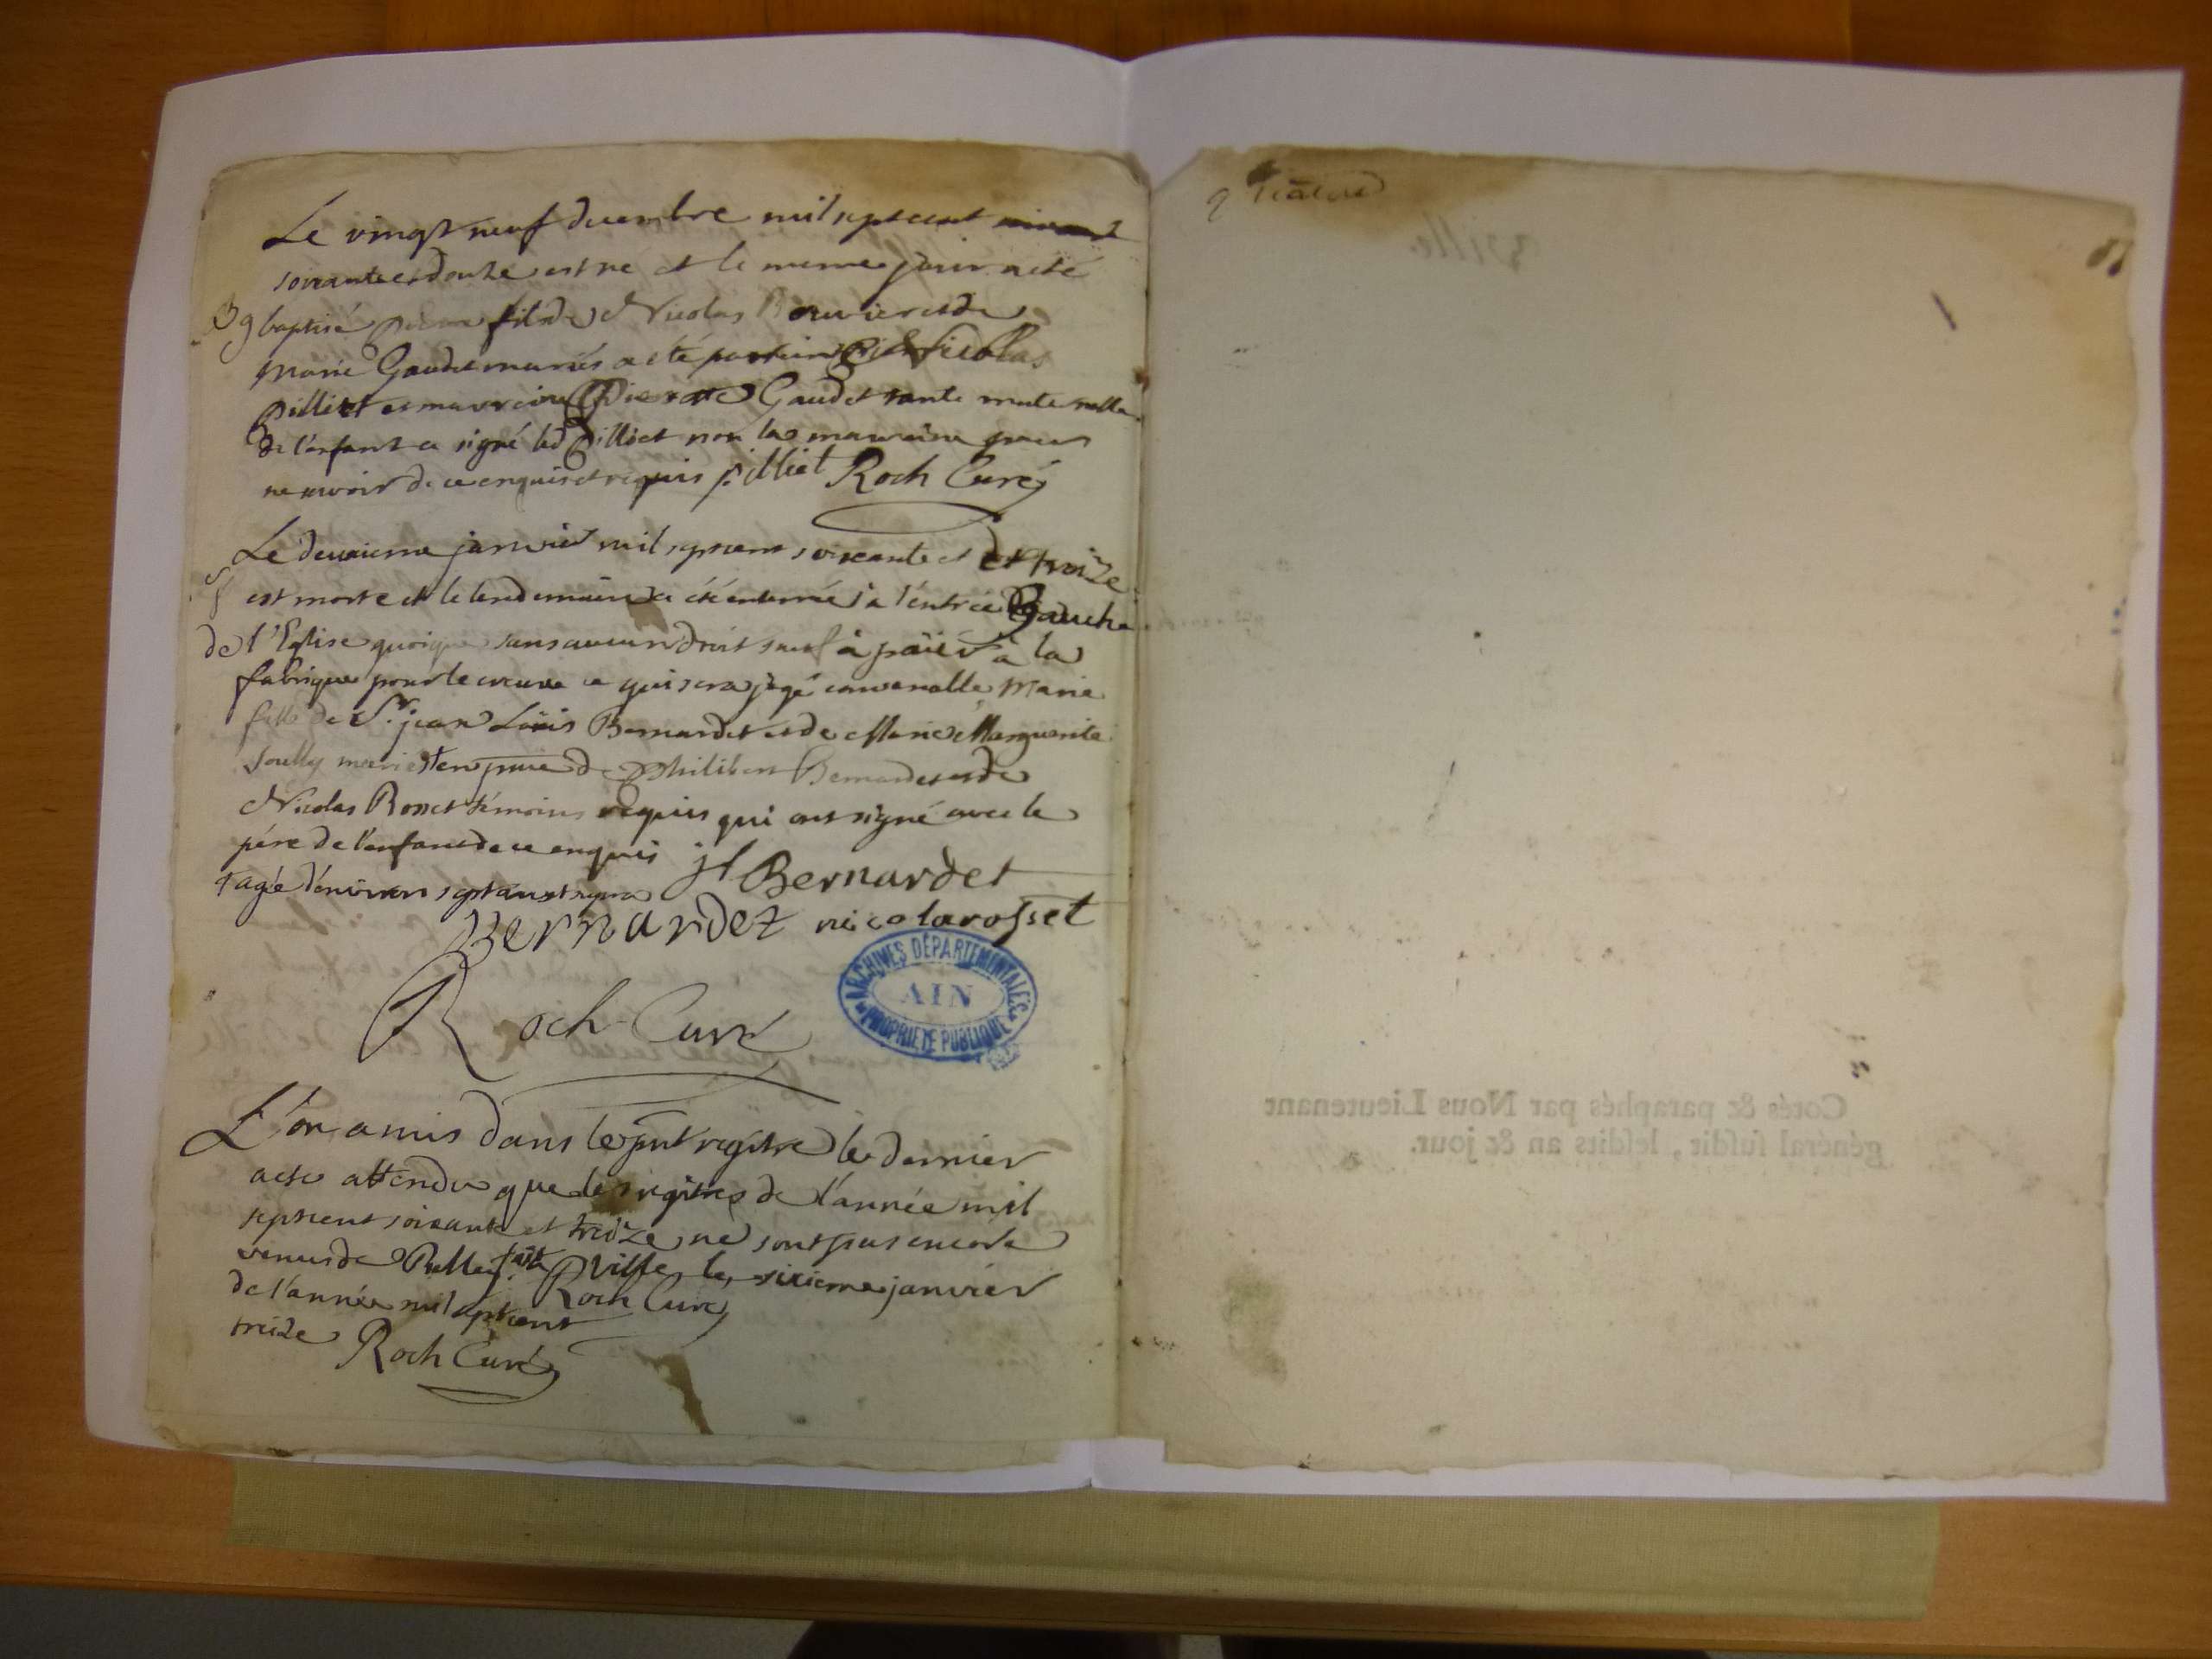 Le vingt neuf decembre mil sept cent
soixante et douze est né et le meme jour a été
baptisé pierre fils de Nicolas Bouvier et de
Marie Gaudet mariés a été parrain Nicolas
Pilliet et marreine Pierrette Gaudet tante maternelle
de l'enfant a signé led Pilliet non la marreine pour
ne savoir de ce enquis et requis pilliet Roch Curé
Le deuxieme janvier mil sept cent soixante et et treize
est morte et le lendemain a été enterrée à l'entrée Gauche
de l'Eglise quoique sans aucun droit sauf à païer à la
fabrique pour le creuse ce qui sera jugé convenable Marie
fille de Sr. jean Loüis Bernardet et de Marie Marguerite
Soully mariés † en presence de Philibert Bernardet et de
Nicolas Rosset témoins requis qui ont signé avec le
pére de l'enfant de ce enquis jl Bernardet
† agée d'environ sept ans
Bernardet nicola rosset
Roch Curé
ARCHIVES DÉPARTEMENTALES
AIN
PROPRIÉTÉ PUBLIQUE
L'on a mis dans le pnt regitre le dernier
acte attendu que les regitres de l'année mil
sept cent soixante et treize ne sont pas encore
venus de Belley. fait Ville le sixieme janvier
de l'année mil sept cent Roch Curé
treize Roch Curé
Ville.
Cotés & paraphés par Nous Lieutenant
général susdit, lesdits an & jour.